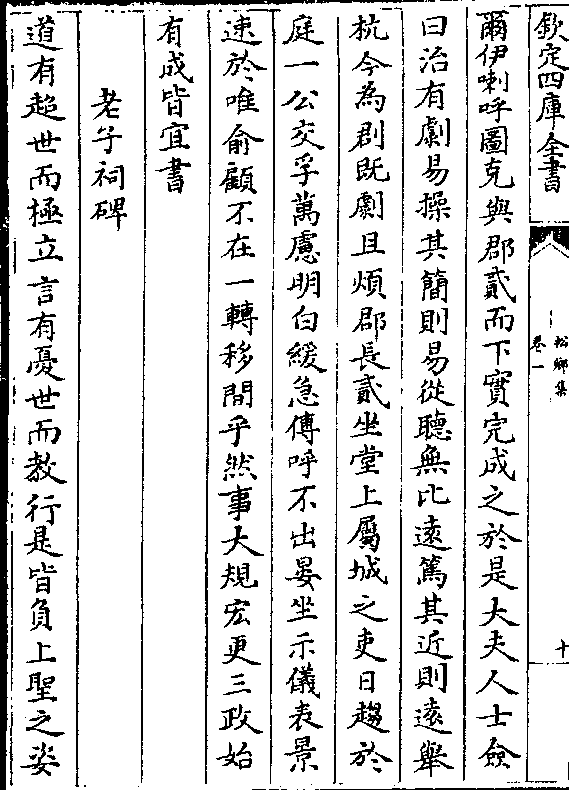 欽定四庫全書
松鄉集
卷一
十
爾伊喇呼圖克與郡貳而下實完成之於是大夫人士僉
曰治有劇易操其簡則易從聽無比遠篤其近則遠舉
杭今為郡既劇且煩郡長貳坐堂上屬城之吏日趨於
庭一公交孚萬慮明白緩急傳呼不出晏坐示儀表景
速於唯俞顧不在一轉移間乎然事大規宏更三政始
有成皆宜書
老子祠碑
道有超世而極立言有憂世而教行是皆負上聖之姿